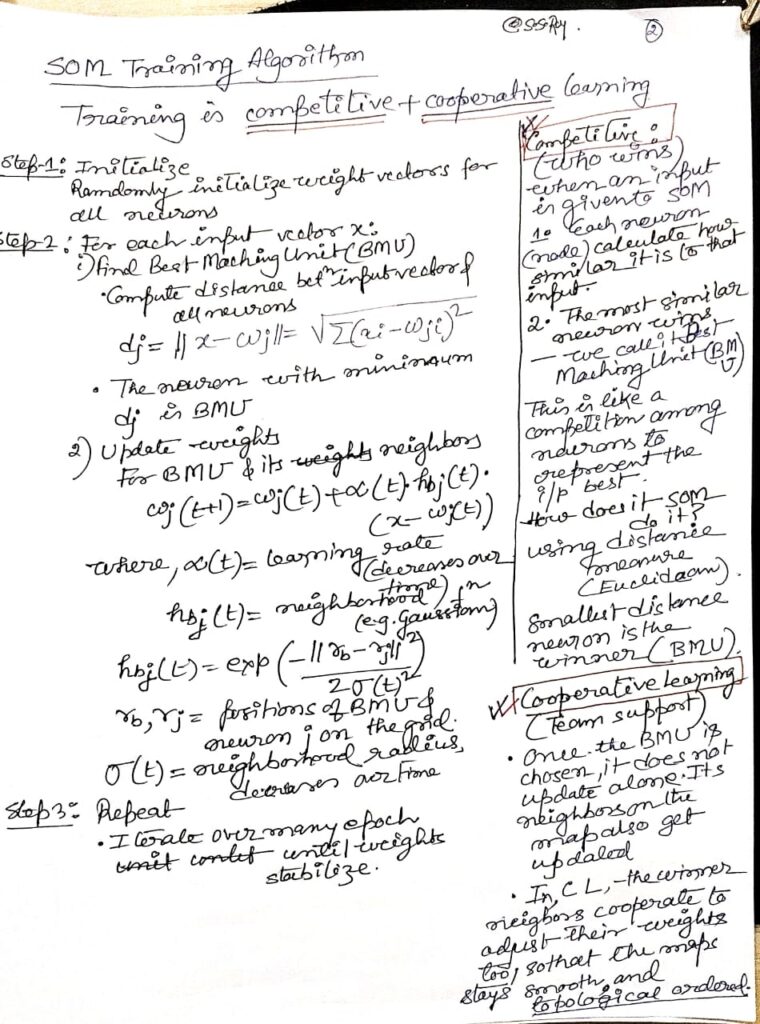 @SSRoy.
2
SOM Training Algorithm
Training is competitive + cooperative learning
Step-1: Initialize
Ramdomly initialize weight vectors for
all neurons
Step-2: For each input vector x:
i) find Best Maching Unit (BMU)
• Compute distance betⁿ input vector &
all neurons
dj = || x - wj || = √Σ(xi - wji)²
• The neuron with minimum
dj is BMU
2) Update weights
For BMU & its weights neighbors
wj(t+1) = wj(t) + α(t). hbj(t).
(x - wj(t))
where, α(t) = learning rate
(decreases over
time)
hbj(t) = neighborhood fn
(e.g. Gaussian)
hbj(t) = exp (-||rb - rj||² / 2σ(t)²)
rb, rj = positions of BMU &
neuron j on the grid.
σ(t) = neighborhood radius,
decreases over time
Step 3: Repeat
• Iterate over many epoch
unit until weights
stabilize.
Competitive:
(who wins)
when an input
is given to SOM
1. each neuron
(node) calculate how
similar it is to that
input.
2. The most similar
neuron wins
— we call it Best
Maching Unit (BM
U)
This is like a
competition among
neurons to
represent the
i/p best.
How does it SOM
do it?
using distance
measure
(Euclidaan).
Smallest distance
neuron is the
winner (BMU).
Cooperative Learning
(Team support)
• Once the BMU is
chosen, it does not
update alone. Its
neighbors on the
map also get
updated
• In, CL, - the winner
neigbors cooperate to
adjust their weights
too, so that the maps
stays smooth and
topological ordered.